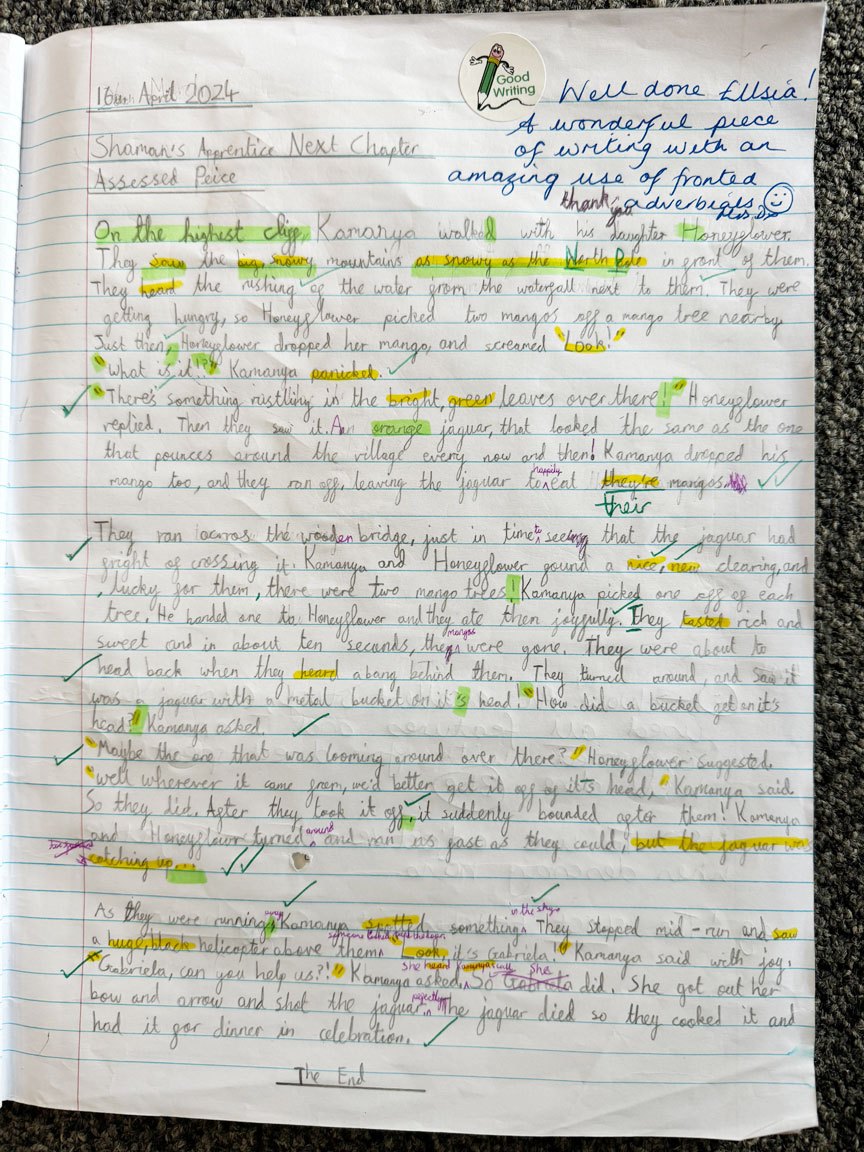 Good
Writing
16th April 2024
Well done Ellsia!
A wonderful piece
of writing with an
amazing use of fronted
adverbials
thank you
Shaman's Apprentice Next Chapter
Assessed Peice
On the highest cliff, Kamanya walked with his daughter Honeyflower.
They saw the big, snowy mountains as snowy as the North Pole in front of them.
They heard the rushing of the water from the waterfall next to them. They were
getting hungry, so Honeyflower picked two mangos off a mango tree nearby
Just then, Honeyflower dropped her mango, and screamed "Look!"
"What is it!?" Kamanya panicked.
"There's something rustling in the bright, green leaves over there!" Honeyflower
replied. Then they saw it. An orange jaguar, that looked the same as the one
that pounces around the village every now and then! Kamanya dropped his
mango too, and they ran off, leaving the jaguar to happily eat they're mangos.
their
They ran accross the wooden bridge, just in time to seeing that the jaguar had
fright of crossing it. Kamanya and Honeyflower found a nice, new clearing, and
, lucky for them, there were two mango trees! Kamanya picked one off of each
tree. He handed one to Honeyflower and they ate then joyfully. They tasted rich and
sweet and in about ten seconds, the mangos were gone. They were about to
head back when they heard a bang behind them. They turned around, and saw it
was a jaguar with a metal bucket on it's head! "How did a bucket get on it's
head?" Kamanya asked.
"Maybe the one that was looming around over there?" Honeyflower suggested.
"well wherever it came from, we'd better get it off of it's head," Kamanya said.
So they did. After they took it off, it suddenly bounded after them! Kamanya
and Honeyflower turned around and ran as fast as they could, but the jaguar was
catching up...
As they were running away, Kamanya spotted something in the sky. They stopped mid-run and saw
a huge, black helicopter above them. "Look, it's Gabriela!" Kamanya said with joy.
"Gabriela, can you help us?!" Kamanya asked. she heard Kamanya's call So She did. She got out her
bow and arrow and shot the jaguar perfectly. The jaguar died so they cooked it and
had it for dinner in celebration.
The End